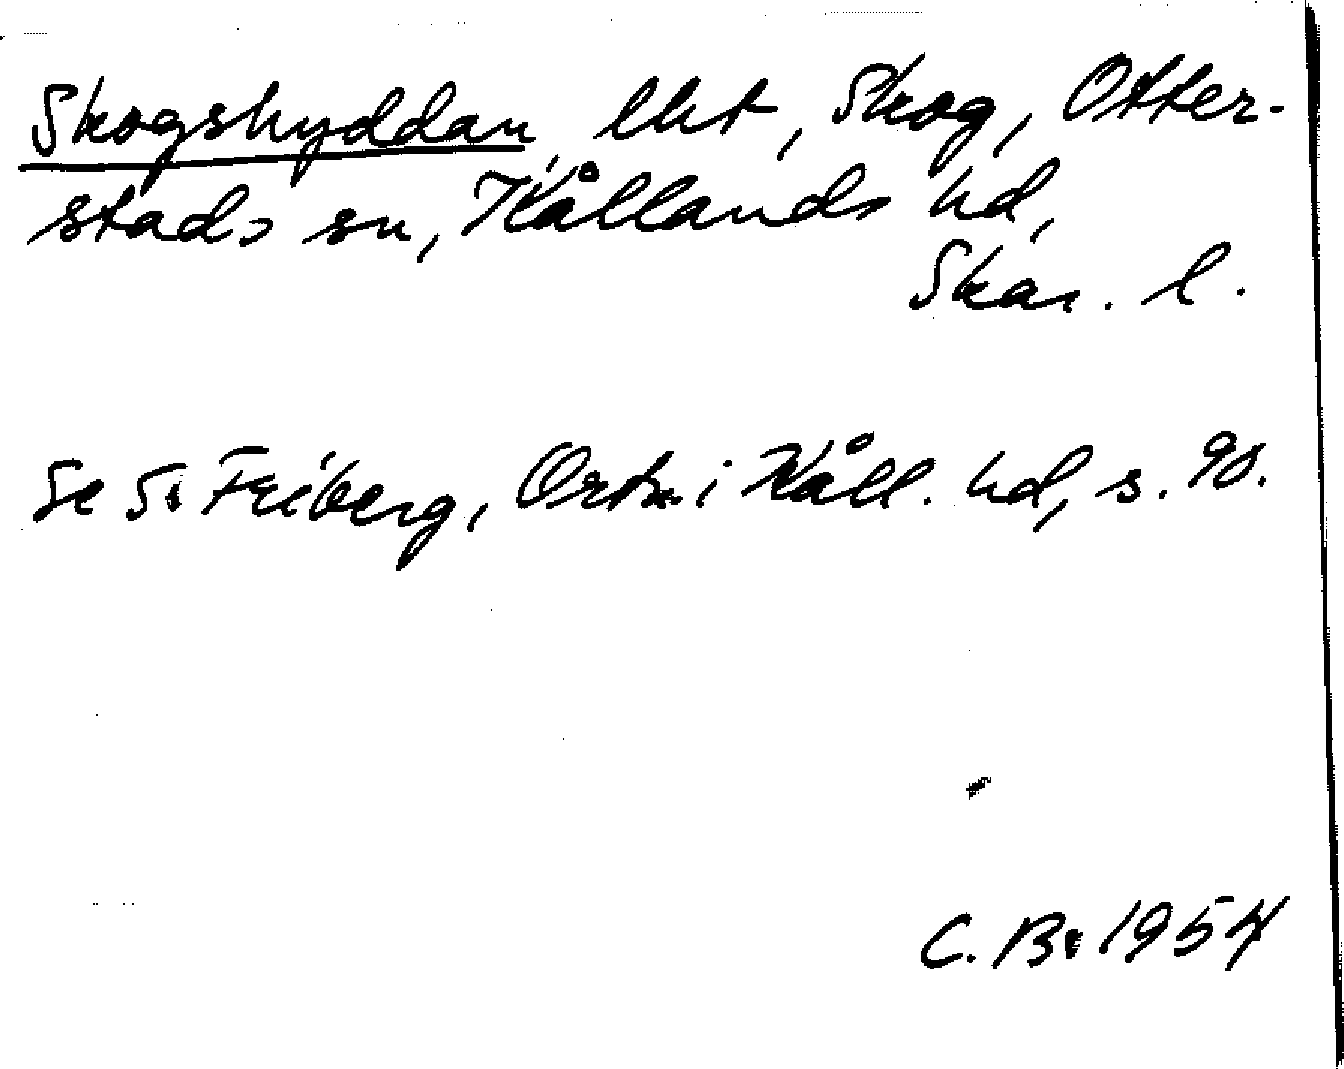 Skogshyddan, lht, Skog, Otter-
stads sn, Kållands hd,
Skar. l.
Se S. Friberg, Ortn. i Kåll. hd, s. 90.
C. B. 1954